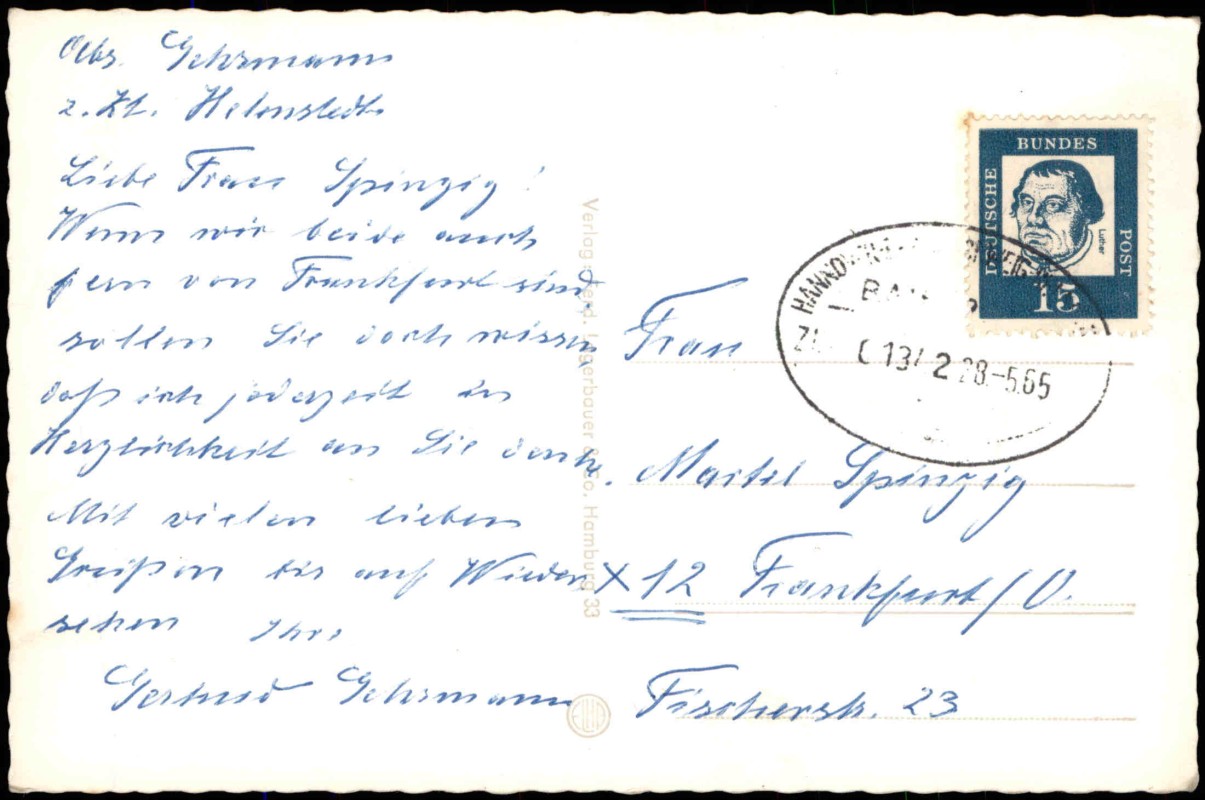 Abs. Gehrmann
z. Zt. Helmstedt
Liebe Frau Spinzig!
Wenn wir beide auch
fern von Frankfurt sind,
sollen Sie doch wissen,
daß ich jederzeit in
Herzlichkeit an Sie denke.
Mit vielen lieben
Grüßen bis auf Wieder
sehen Ihre
Gertrud Gehrmann
Verlag Ferd. Lagerbauer & Co, Hamburg 33
DEUTSCHE
BUNDES
POST
Luther
15
HANNOVER
ZUG
0134 2 28.-5.65
Frau
Martel Spinzig
X 12 Frankfurt/O.
Fischerstr. 23